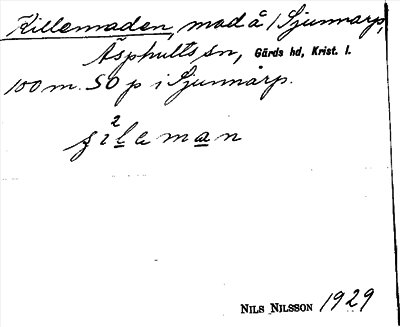 Killemaden, mad å / Sjunnarp,
Äsphults sn, Gärds hd, Krist. l.
100 m. SO p i Sjunnarp.
2
ʒ i l e m a n
NILS NILSSON 1929